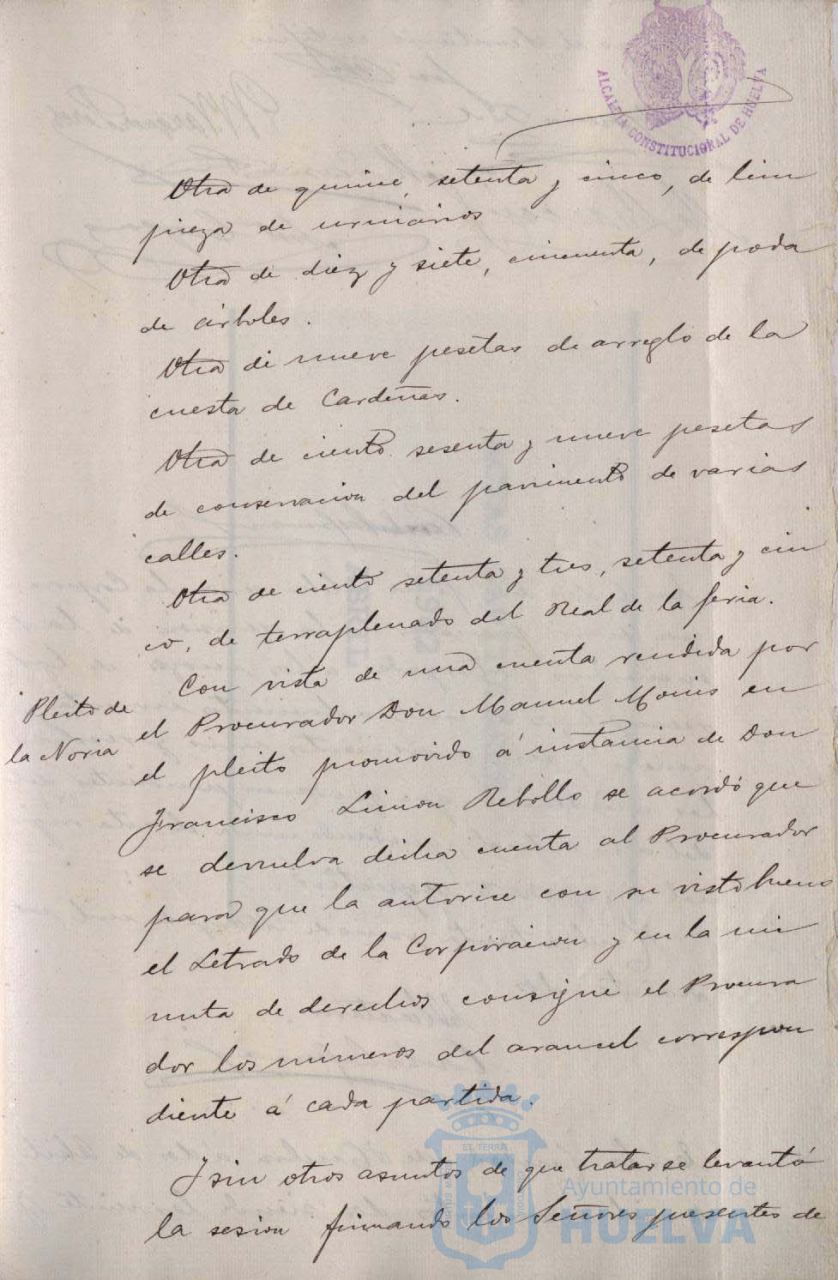 ALCALDIA CONSTITUCIONAL DE HUELVA
Otra de quince, setenta y cinco, de lim
pieza de urinarios
Otra de diez y siete, cincuenta, de poda
de árboles.
Otra de nueve pesetas de arreglo de la
cuesta de Cardeñas.
Otra de ciento sesenta y nueve pesetas
de conservacion del pavimento de varias
calles.
Otra de ciento setenta y tres, setenta y cin
co, de terraplenado del Real de la feria.
Con vista de una cuenta rendida por
Pleito de
la Noria
el Procurador Don Manuel Monis en
el pleito promovido á instancia de Don
Francisco Limon Rebollo se acordó que
se devuelva dicha cuenta al Procurador
para que la autorice con su visto bueno
el Letrado de la Corporacion y en la mi
nuta de derechos consigne el Procura
dor los números del arancel correspon
diente á cada partida.
Y sin otros asuntos de que tratar se levantó
la sesion firmando los Señores presentes de
Ayuntamiento de
HUELVA